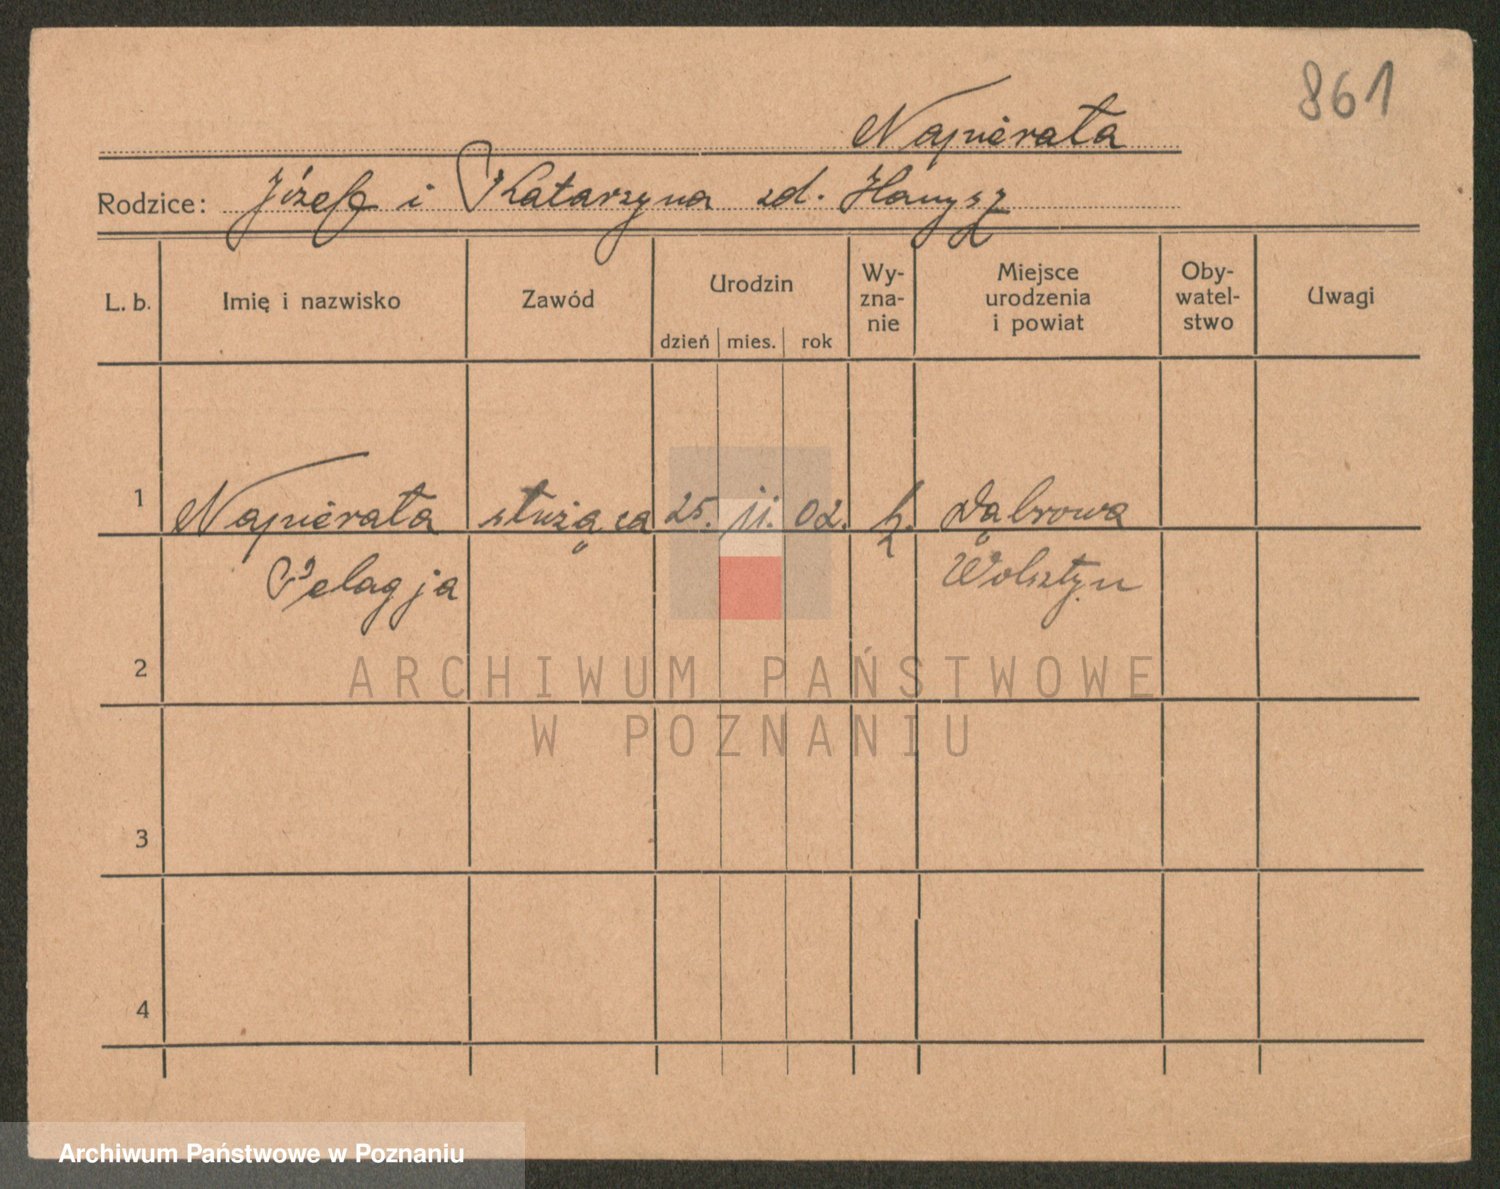 861
Napierała
Rodzice: Józef i Katarzyna zd. Hanysz
L. b. Imię i nazwisko Zawód Urodzin dzień mies. rok Wy-zna-nie Miejsce urodzenia i powiat Oby-watel-stwo Uwagi
1 Napierała służąca 25. 11. 02. k. Dąbrowa
Pelagja Wolsztyn
2
ARCHIWUM PAŃSTWOWE
W POZNANIU
3
4
Archiwum Państwowe w Poznaniu